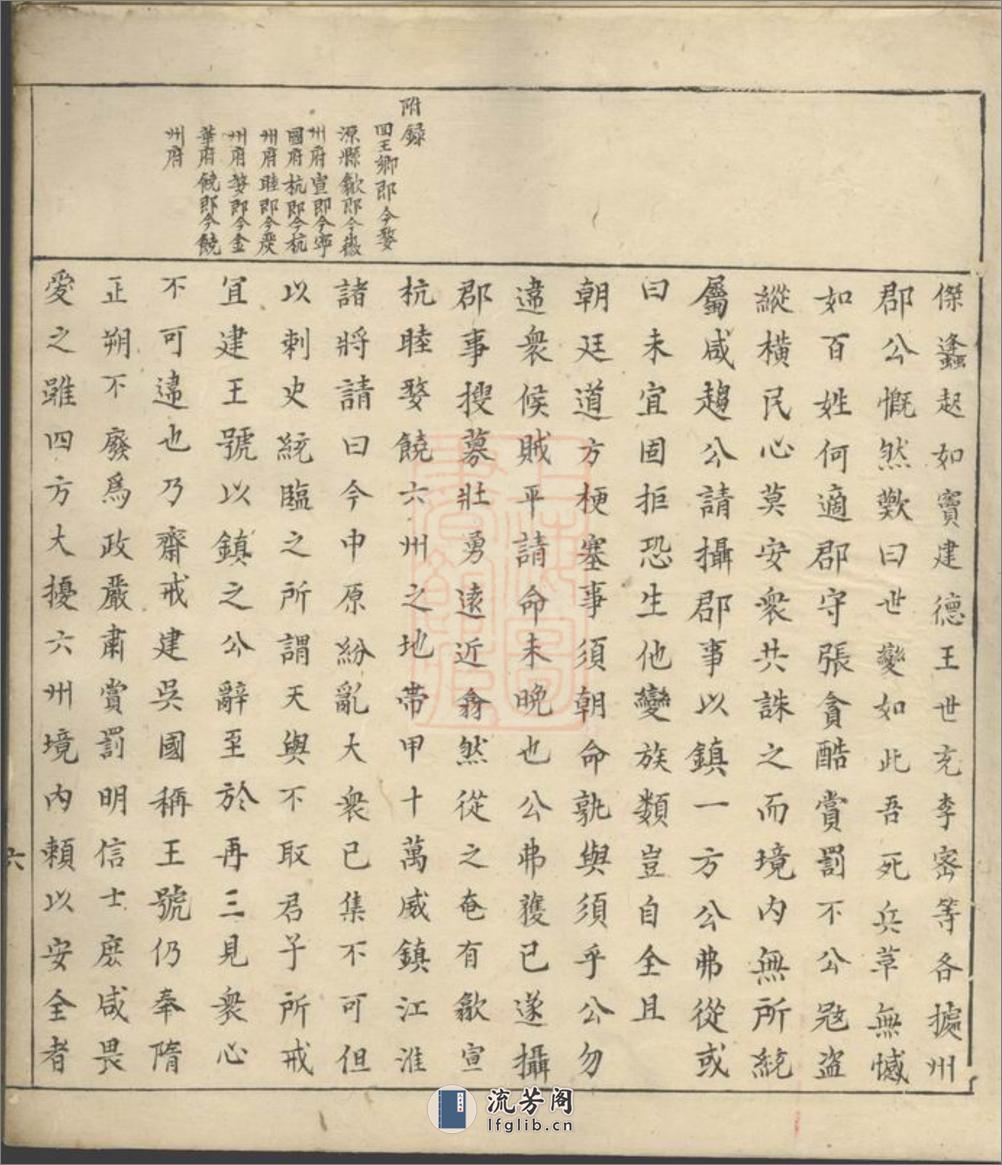 附錄
四王鄉即今婺
源縣歙即今徽
州府宣即今寧
國府杭即今杭
州府睦即今嚴
州府婺即今金
華府饒即今饒
州府
傑蠭起如竇建德王世充李密等各據州
郡公慨然歎曰世變如此吾死兵革無憾
如百姓何適郡守張貪酷賞罰不公冦盗
縱橫民心莫安衆共誅之而境内無所統
屬咸趨公請攝郡事以鎮一方公弗從或
曰未宜固拒恐生他變族類豈自全且
朝廷道方梗塞事須朝命孰與須乎公勿
違衆候賊平請命未晚也公弗獲已遂攝
郡事搜募壯勇遠近翕然從之奄有歙宣
杭睦婺饒六州之地帶甲十萬威鎮江淮
諸將請曰今中原紛亂大衆已集不可但
以刺史統臨之所謂天與不取君子所戒
宜建王號以鎮之公辭至於再三見衆心
不可違也乃齋戒建吳國稱王號仍奉隋
正朔不廢爲政嚴肅賞罰明信士庶咸畏
愛之雖四方大擾六州境内賴以安全者
六
流芳阁
lfglib.cn